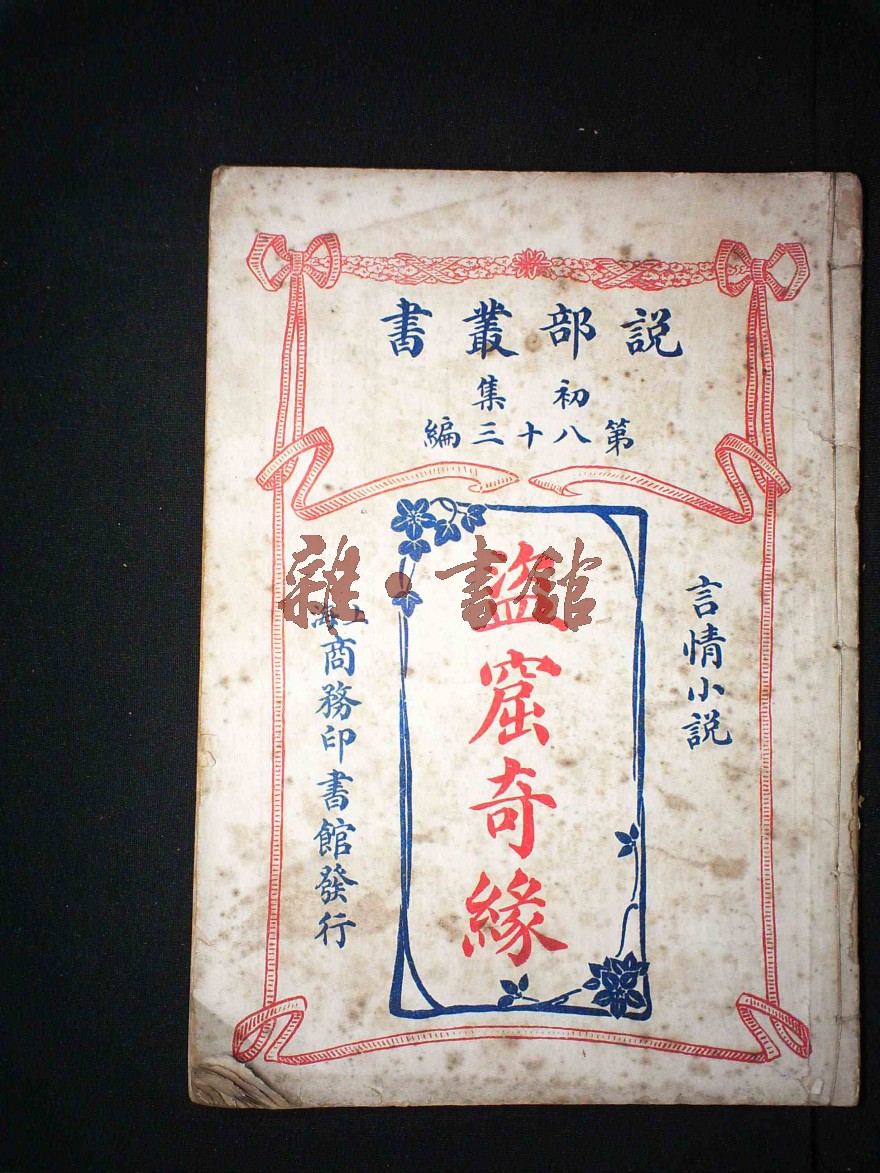 説部叢書
初集
第八十三編
言情小説
盜窟奇緣
上海商務印書館發行
雜·書館